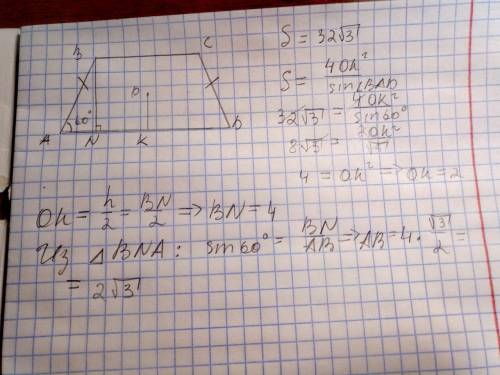 B
C
O
60°
A
N
K
D
S = 32√3
S = 4OK² / sin∠BAD
32√3 = 4OK² / sin60°
8√3 = 2OK² / √3
4 = OK² => OK = 2
OK = h/2 = BN/2 => BN = 4
Из △BNA: sin60° = BN/AB => AB = 4 · √3/2 =
= 2√3